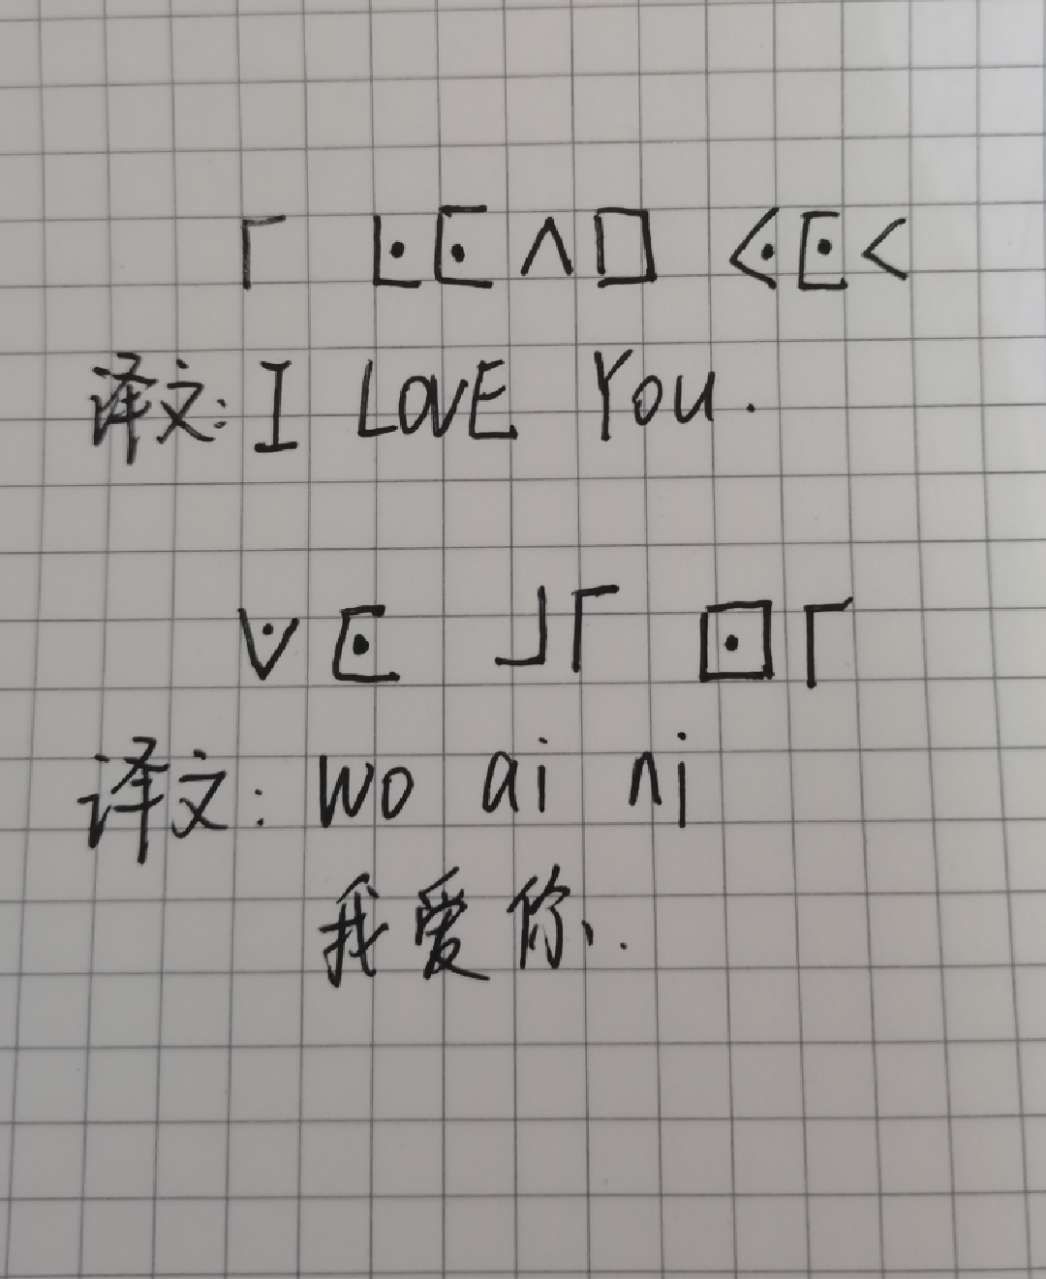 译文: I LOVE You.
译文: wo ai ni
我爱你.